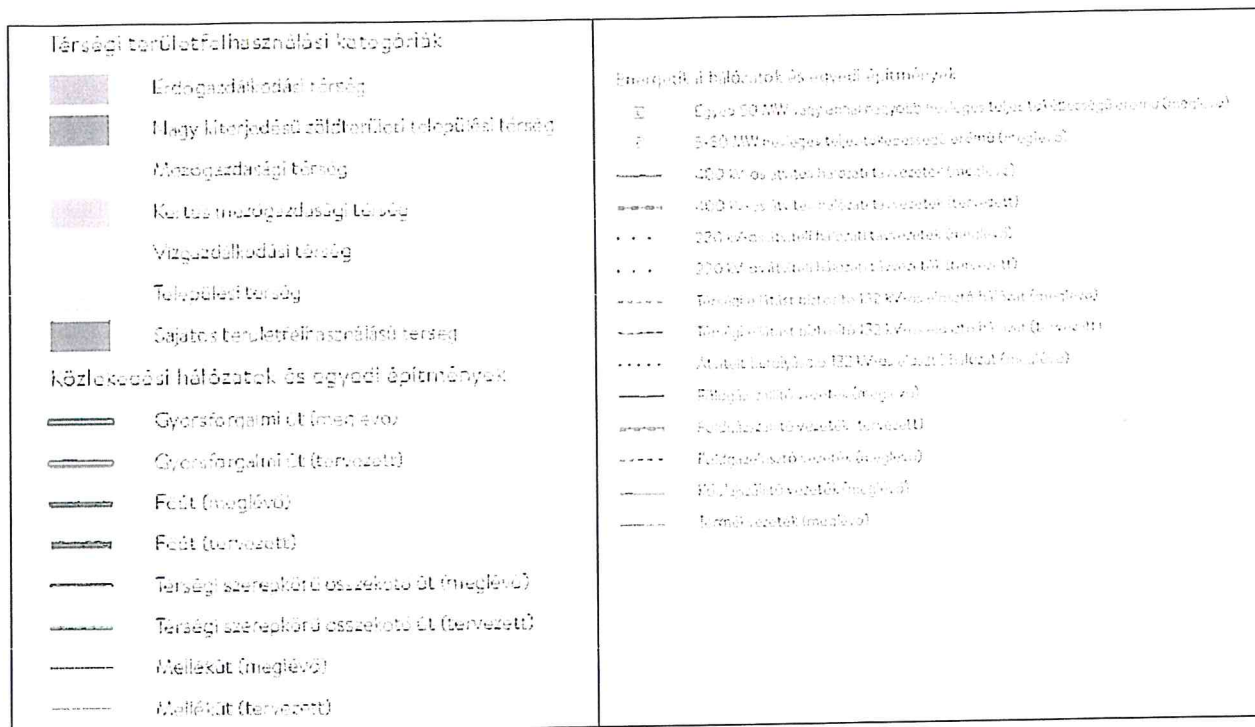 Térségi területfelhasználási kategóriák
Erdőgazdálkodási térség
Nagy kiterjedésű zöldterületi települési térség
Mezőgazdasági térség
Kertes mezőgazdasági térség
Vízgazdálkodási térség
Települési térség
Sajátos területfelhasználású térség
Közlekedési hálózatok és egyedi építmények
Gyorsforgalmi út (meglévő)
Gyorsforgalmi út (tervezett)
Főút (meglévő)
Főút (tervezett)
Térségi szerepkörű összekötő út (meglévő)
Térségi szerepkörű összekötő út (tervezett)
Mellékút (meglévő)
Mellékút (tervezett)
Energetikai hálózatok és egyedi építmények
Egyéb 50 MW vagy annál nagyobb névleges teljesítőképességű erőmű (meglévő)
5-50 MW névleges teljesítőképességű erőmű (meglévő)
400 kV-os átviteli hálózati távvezeték (meglévő)
400 kV-os átviteli hálózati távvezeték (tervezett)
220 kV-os átviteli hálózati távvezeték (meglévő)
220 kV-os átviteli hálózati (tervezett)
Térségi ellátást biztosító 132 kV-os elosztó hálózat (meglévő)
Térségi ellátást biztosító 132 kV-os elosztó hálózat (tervezett)
132 kV-os elosztó hálózat (meglévő)
Földgázszállító vezeték (meglévő)
Földgázszállító vezeték (tervezett)
Földgázelosztó vezeték (meglévő)
Kőolajszállító vezeték (meglévő)
Termékvezeték (meglévő)